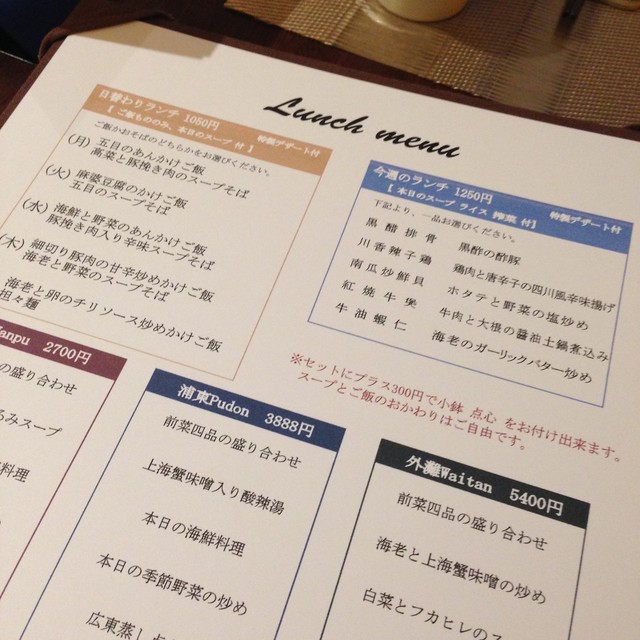 Lunch menu
日替わりランチ 1050円
【 ご飯もののみ、本日のスープ 付 】 特製デザート付
ご飯かおそばのどちらかをお選びください。
(月) 五目のあんかけご飯
高菜と豚挽き肉のスープそば
(火) 麻婆豆腐のかけご飯
五目のスープそば
(水) 海鮮と野菜のあんかけご飯
豚挽き肉入り辛味スープそば
(木) 細切り豚肉の甘辛炒めかけご飯
海老と野菜のスープそば
海老と卵のチリソース炒めかけご飯
担々麺
今週のランチ 1250円 特製デザート付
【 本日のスープ ライス 搾菜 付】
下記より、一品お選びください。
黒醋排骨 黒酢の酢豚
川香辣子鶏 鶏肉と唐辛子の四川風辛味揚げ
南瓜炒鮮貝 ホタテと野菜の塩炒め
紅焼牛 牛肉と大根の醤油土鍋煮込み
牛油蝦仁 海老のガーリックバター炒め
※セットにプラス300円で小鉢 点心 をお付け出来ます。
スープとご飯のおかわりはご自由です。
anpu 2700円
の盛り合わせ
るみスープ
料理
の炒め
浦東Pudon 3888円
前菜四品の盛り合わせ
上海蟹味噌入り酸辣湯
本日の海鮮料理
本日の季節野菜の炒め
広東蒸し点
外灘Waitan 5400円
前菜四品の盛り合わせ
海老と上海蟹味噌の炒め
白菜とフカヒレのス